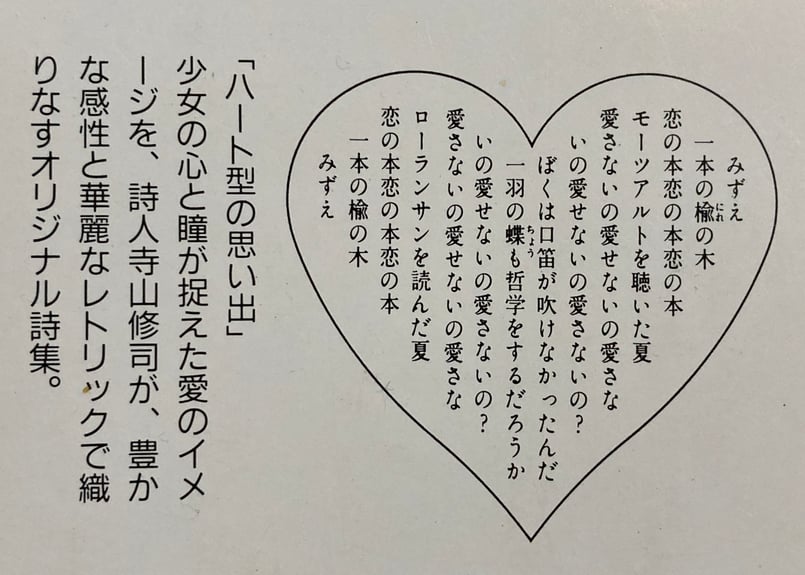 みずえ
一本の楡の木
恋の本恋の本恋の本
モーツアルトを聴いた夏
愛さないの愛せないの愛さな
いの愛せないの愛さないの?
ぼくは口笛が吹けなかったんだ
一羽の蝶も哲学をするだろうか
いの愛せないの愛さないの?
愛さないの愛せないの愛さな
ローランサンを読んだ夏
恋の本恋の本恋の本
一本の楡の木
みずえ
にれ
ちょう
「ハート型の思い出」
少女の心と瞳が捉えた愛のイメ
ージを、詩人寺山修司が、豊か
な感性と華麗なレトリックで織
りなすオリジナル詩集。